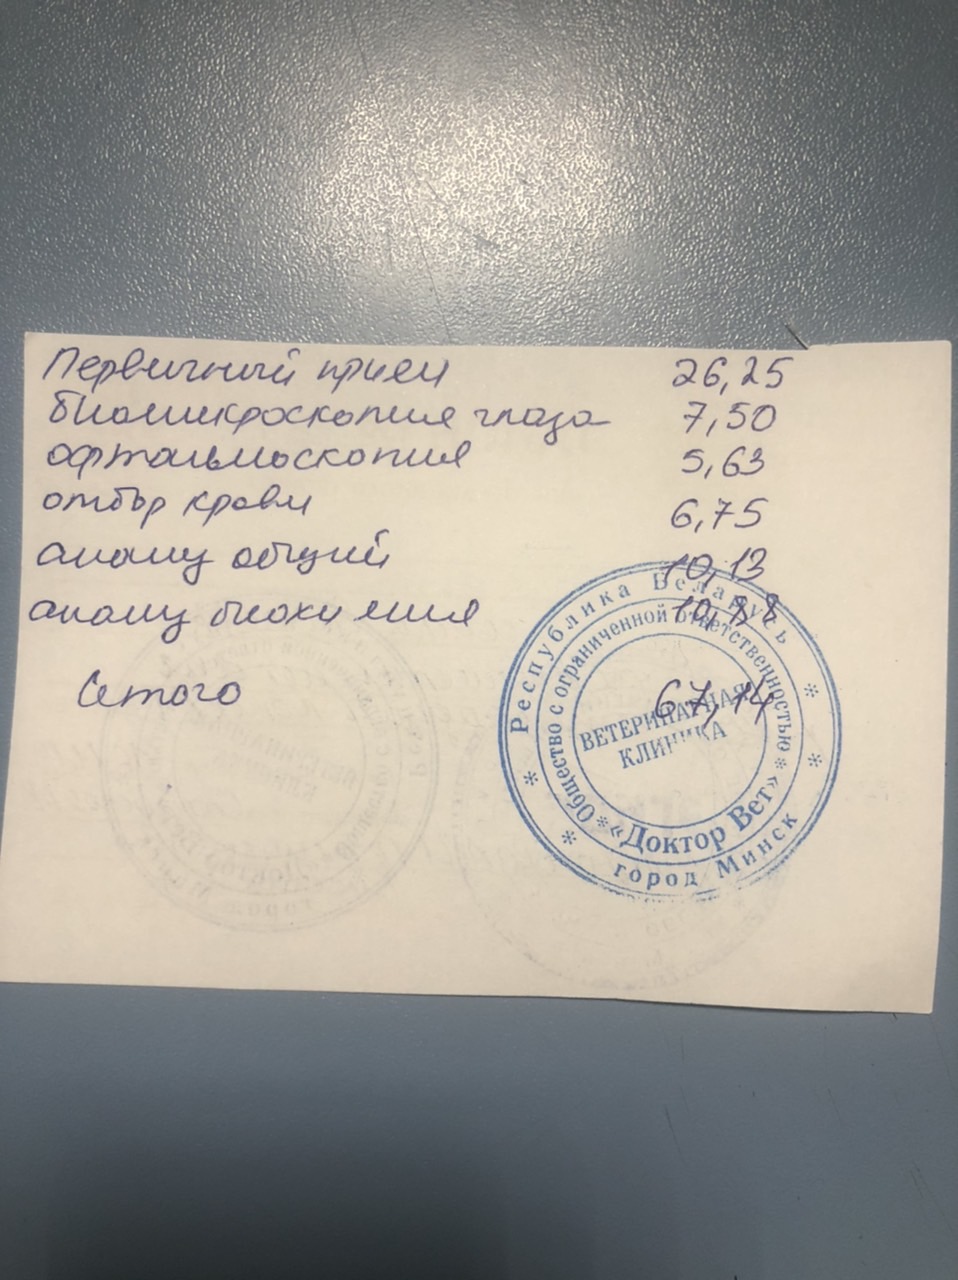 Первичный прием 26,25
биомикроскопия глаза 7,50
офтальмоскопия 5,63
отбор крови 6,75
анализ общий 10,13
анализ биохимия 10,88
Итого 67,14
Республика Беларусь
Общество с ограниченной ответственностью
ВЕТЕРИНАРНАЯ
КЛИНИКА
«Доктор Вет»
город Минск